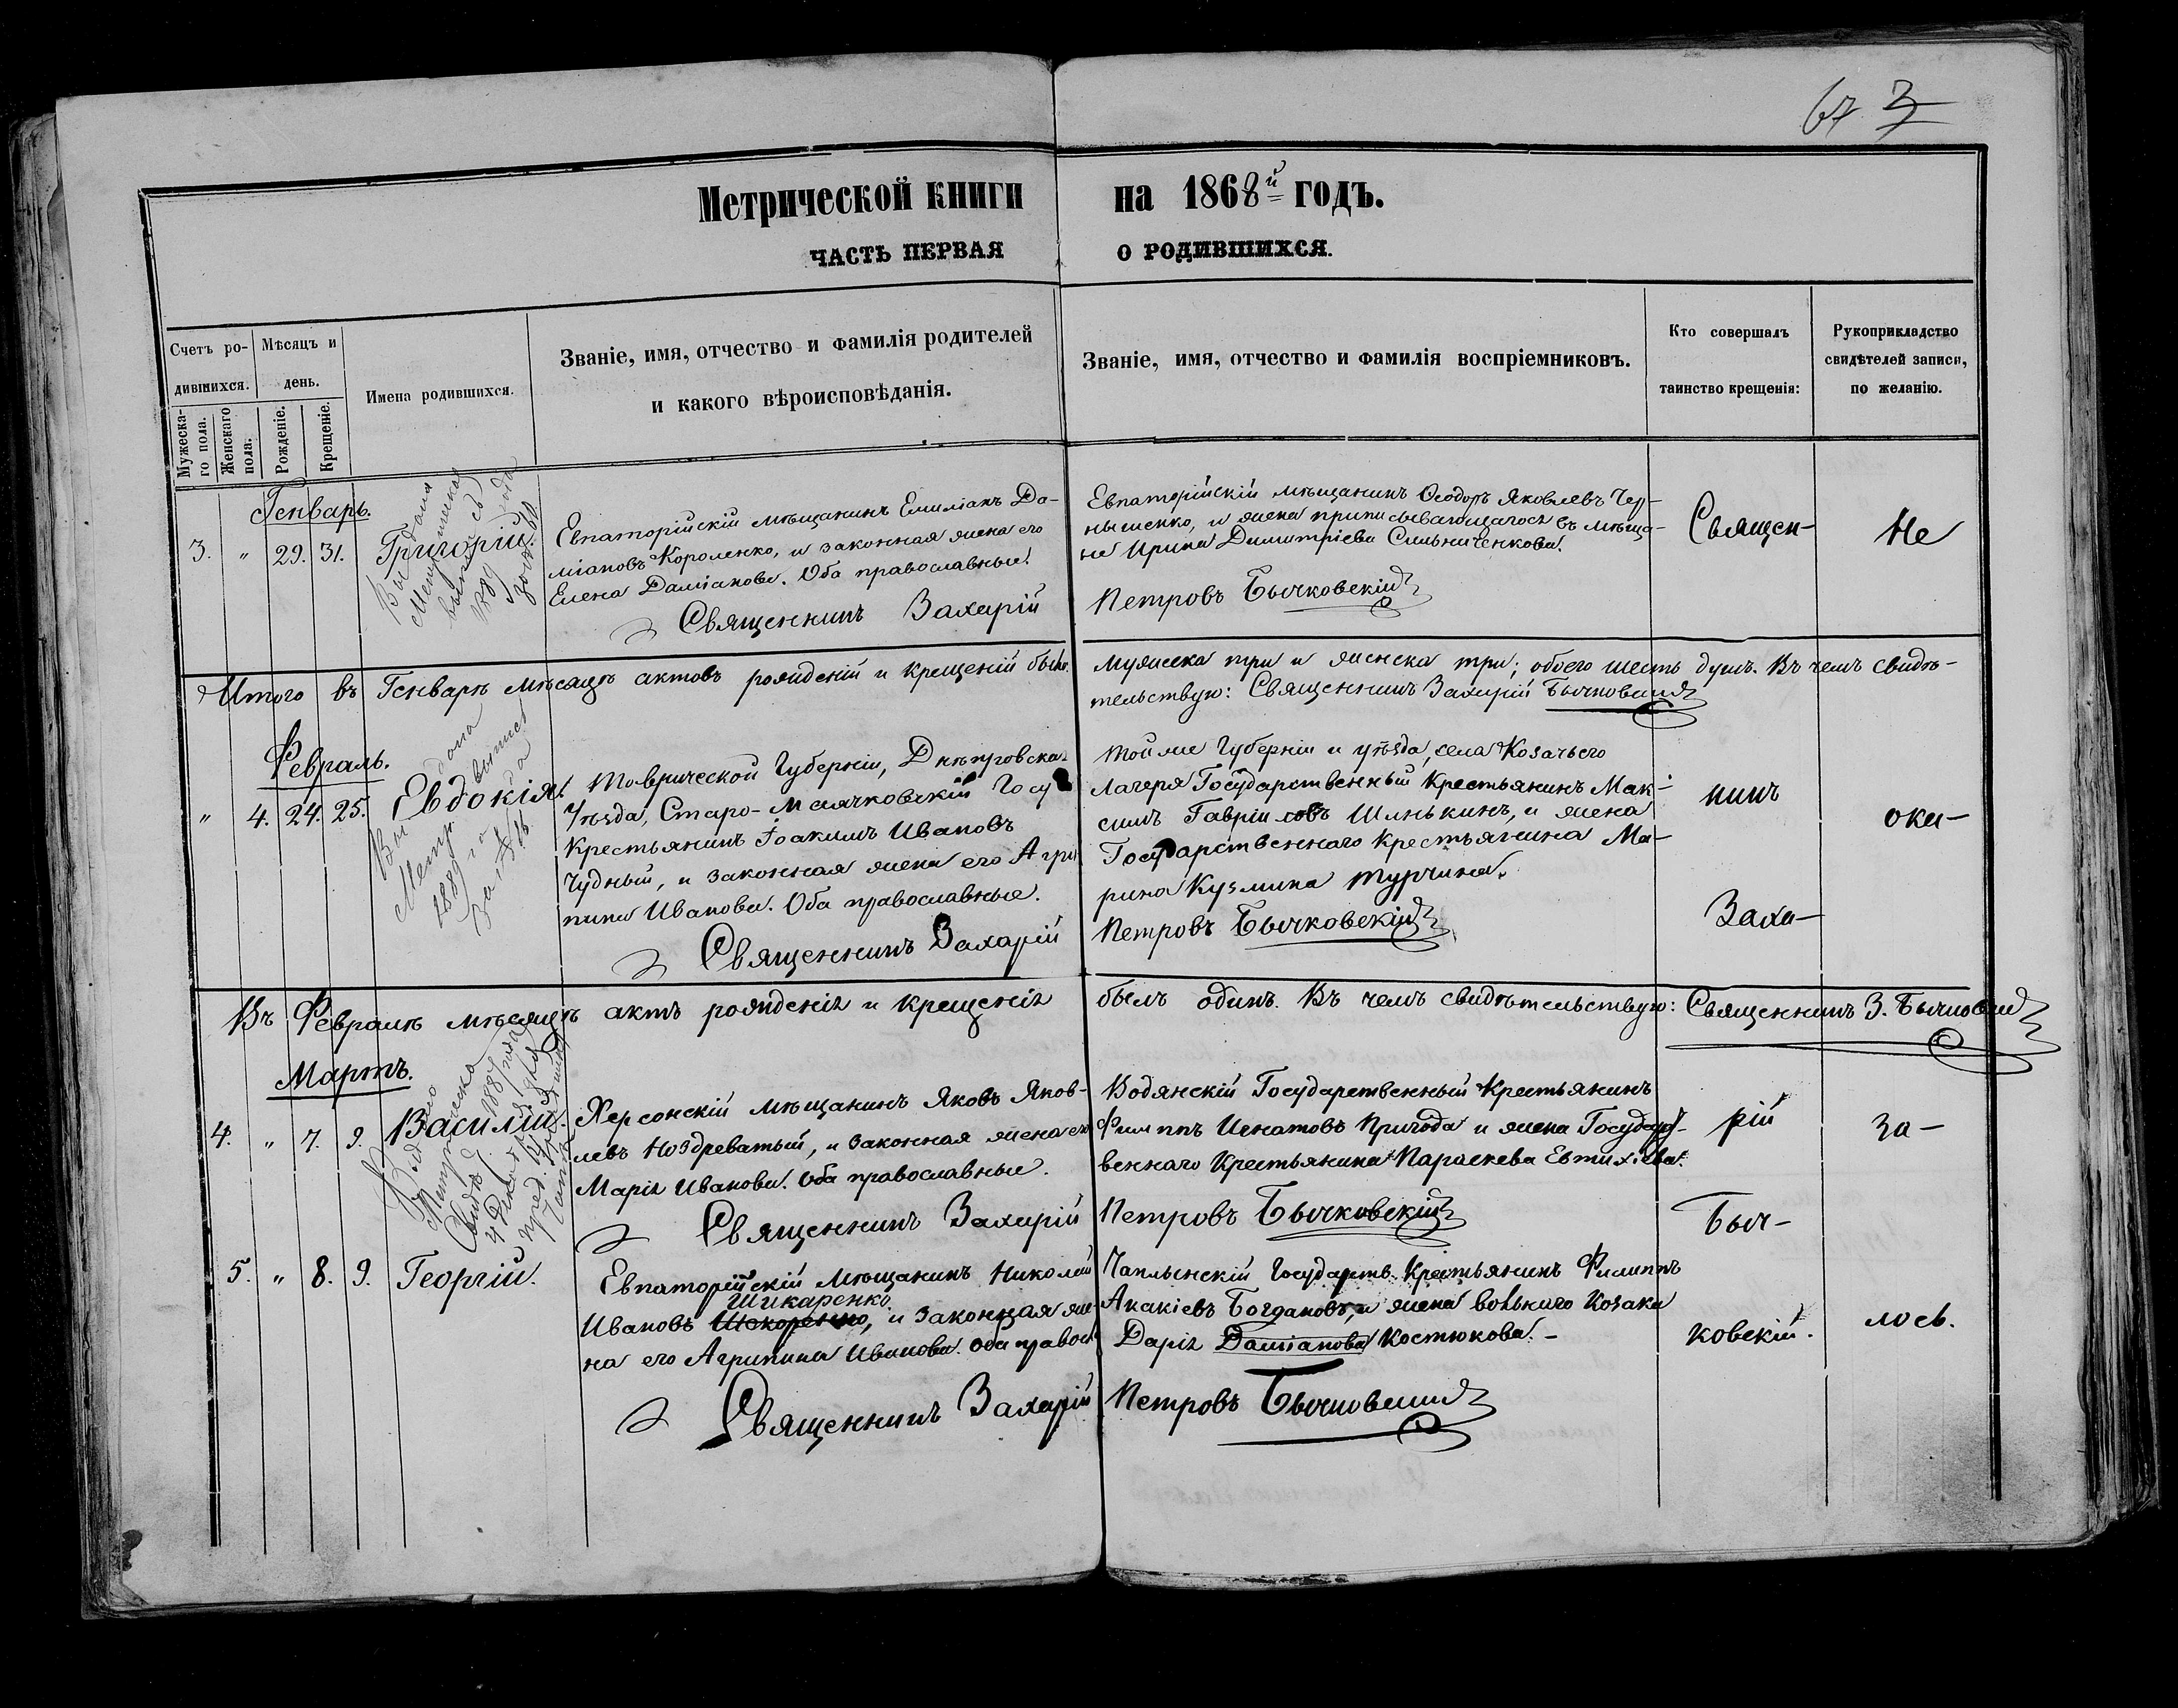 67 3
Метрической книги на 1868й годъ.
ЧАСТЬ ПЕРВАЯ О РОДИВШИХСЯ.
Счетъ ро-
дившихся.
Мужеска-
го пола.
Женскаго
пола.
Мѣсяцъ и
день.
Рожденіе.
Крещеніе.
Имена родившихся.
Званіе, имя, отчество и фамилія родителей
и какого вѣроисповѣданія.
Званіе, имя, отчество и фамилія воспріемниковъ.
Кто совершалъ
таинство крещенія:
Рукоприкладство
свидѣтелей записи,
по желанію.
Генварь.
3. " 29. 31. Григорій.
Выдана
Метрическая
выпись
1889 года
Евпаторійскій мѣщанинъ Емиліанъ Да-
міановъ Короленко, и законная жена его
Елена Даміанова. Оба православные.
Священникъ Захарій
Евпаторійскій мѣщанинъ Ѳеодоръ Яковлевъ Чер-
нышенко, и жена приписывающагося въ мѣща-
не Ирина Димитріева Сильниченкова.
Петровъ Бычковскій
Священ-
Не
Итого въ Генварѣ мѣсяцѣ актовъ рожденій и крещеній было.
мужеска три и женска три; обоего шесть душъ. Въ чемъ свидѣ-
тельствую: Священникъ Захарій Бычковскій
Февраль.
" 4. 24. 25. Евдокія.
Выдана
Метр выпись
1889 года
за №
Таврической Губерніи, Днѣпровска.
Уѣзда, Старо-Маячковскій Госу
Крестьянинъ Іоакимъ Ивановъ
Чудный, и законная жена его Агри
пина Иванова. Оба православные.
Священникъ Захарій
Той же Губерніи и уѣзда, села Козачьего
Лагеря Государственный Крестьянинъ Мак-
симъ Гавріиловъ Шинькинъ, и жена
Государственнаго Крестьянина Ма-
рина Кузмина Турчина.
Петровъ Бычковскій
никъ
Заха-
ока-
Въ Февралѣ мѣсяцѣ актъ рожденія и крещенія
былъ одинъ. Въ чемъ свидѣтельствую: Священникъ З. Бычковскій
Мартъ.
4. " 7. 9. Василій.
Выдано
Метрическо
Свидѣт. 1887 года
Херсонскій мѣщанинъ Яковъ Яков-
левъ Ноздреватый, и законная жена его
Марія Иванова. Оба православные.
Священникъ Захарій
Водянскій Государственный Крестьянинъ
Филиппъ Игнатовъ Пригода и жена Государст-
веннаго Крестьянина Параскева Евтихіева.
Петровъ Бычковскій
рій
Быч-
за-
5. " 8. 9. Георгій.
Евпаторійскій Мѣщанинъ Николай
Шикаренко
Ивановъ Шкоренко, и законная же-
на его Агрипина Иванова. Оба правосл
Священникъ Захарій
Чаплынскій Государств. Крестьянинъ Филиппъ
Акакіевъ Богдановъ, и жена вольнаго Козака
Дарія Даміанова Костюкова. -
Петровъ Бычковскій
ковскій.
лось.